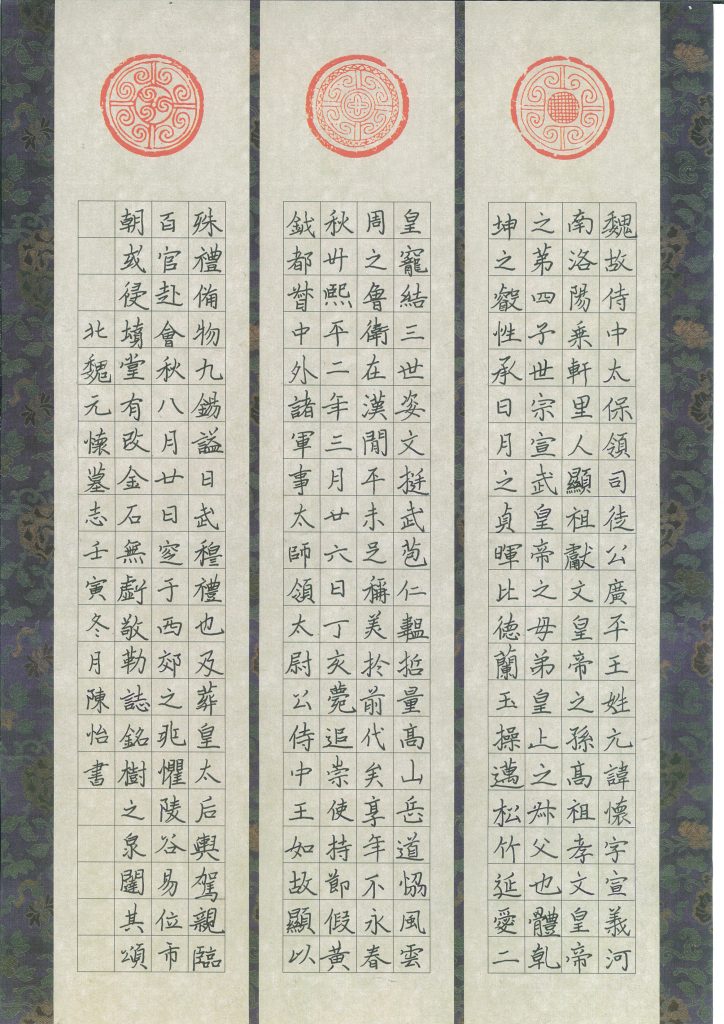 魏故侍中太保領司徒公廣平王姓元諱懷字宣義河
南洛陽乘軒里人顯祖獻文皇帝之孫高祖孝文皇帝
之第四子世宗宣武皇帝之母弟皇上之叔父也體乾
坤之叡性承日月之貞暉比德蘭玉操邁松竹延愛二
皇寵結三世姿文挺武苞仁韞哲量高山岳道協風雲
周之魯衛在漢閒平未足稱美於前代矣享年不永春
秋廿熙平二年三月廿六日丁亥薨追崇使持節假黃
鉞都督中外諸軍事太師領太尉公侍中王如故顯以
殊禮備物九錫謚曰武穆禮也及葬皇太后輿駕親臨
百官赴會秋八月廿日窆于西郊之兆懼陵谷易位市
朝或侵墳堂有改金石無虧敬勒誌銘樹之泉闥其頌
北魏元懷墓志壬寅冬月陳怡書